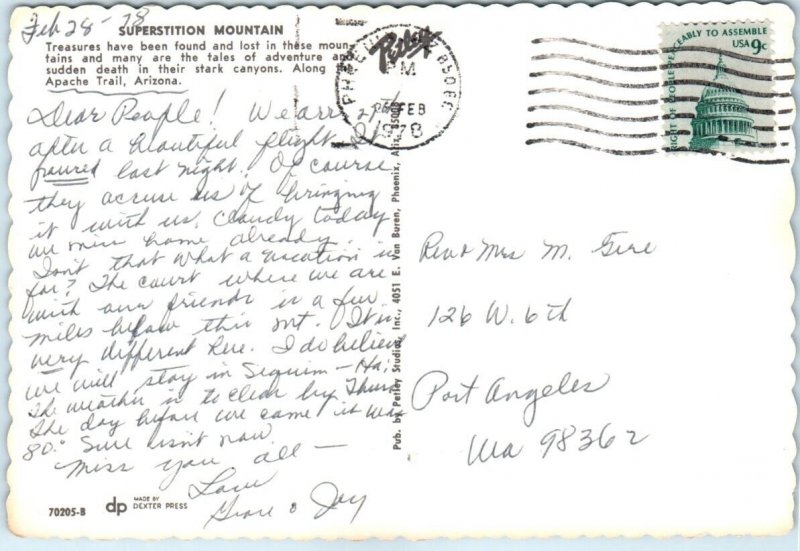 Feb 28-78
SUPERSTITION MOUNTAIN
Treasures have been found and lost in these moun-
tains and many are the tales of adventure and
sudden death in their stark canyons. Along
Apache Trail, Arizona.
Dear People! We arr
after a beautiful flight
poured last night. Of course
they accuse us of bringing
it with us. Cloudy today
we miss home already.
Isn't that what a vacation is
for? The court where we are
with our friends is a few
miles below this mt. It is
very different here. I do believe
we will stay in Sequim - Ha.
The weather is to clear by Thurs
The day before we came it was
80° Sure isn't now
Miss you all —
Love
Grace & Jay
70205-B
dp MADE BY
DEXTER PRESS
Pub. by Petley Studios, Inc., 4051 E. Van Buren, Phoenix, Ariz. 85008
Petley
PHOE
850
M
FEB
1978
RIGHT OF PEOPLE PEACEABLY TO ASSEMBLE
USA 9c
Rev & Mrs M. Gere
126 W. 6th
Port Angeles
Wa 98362